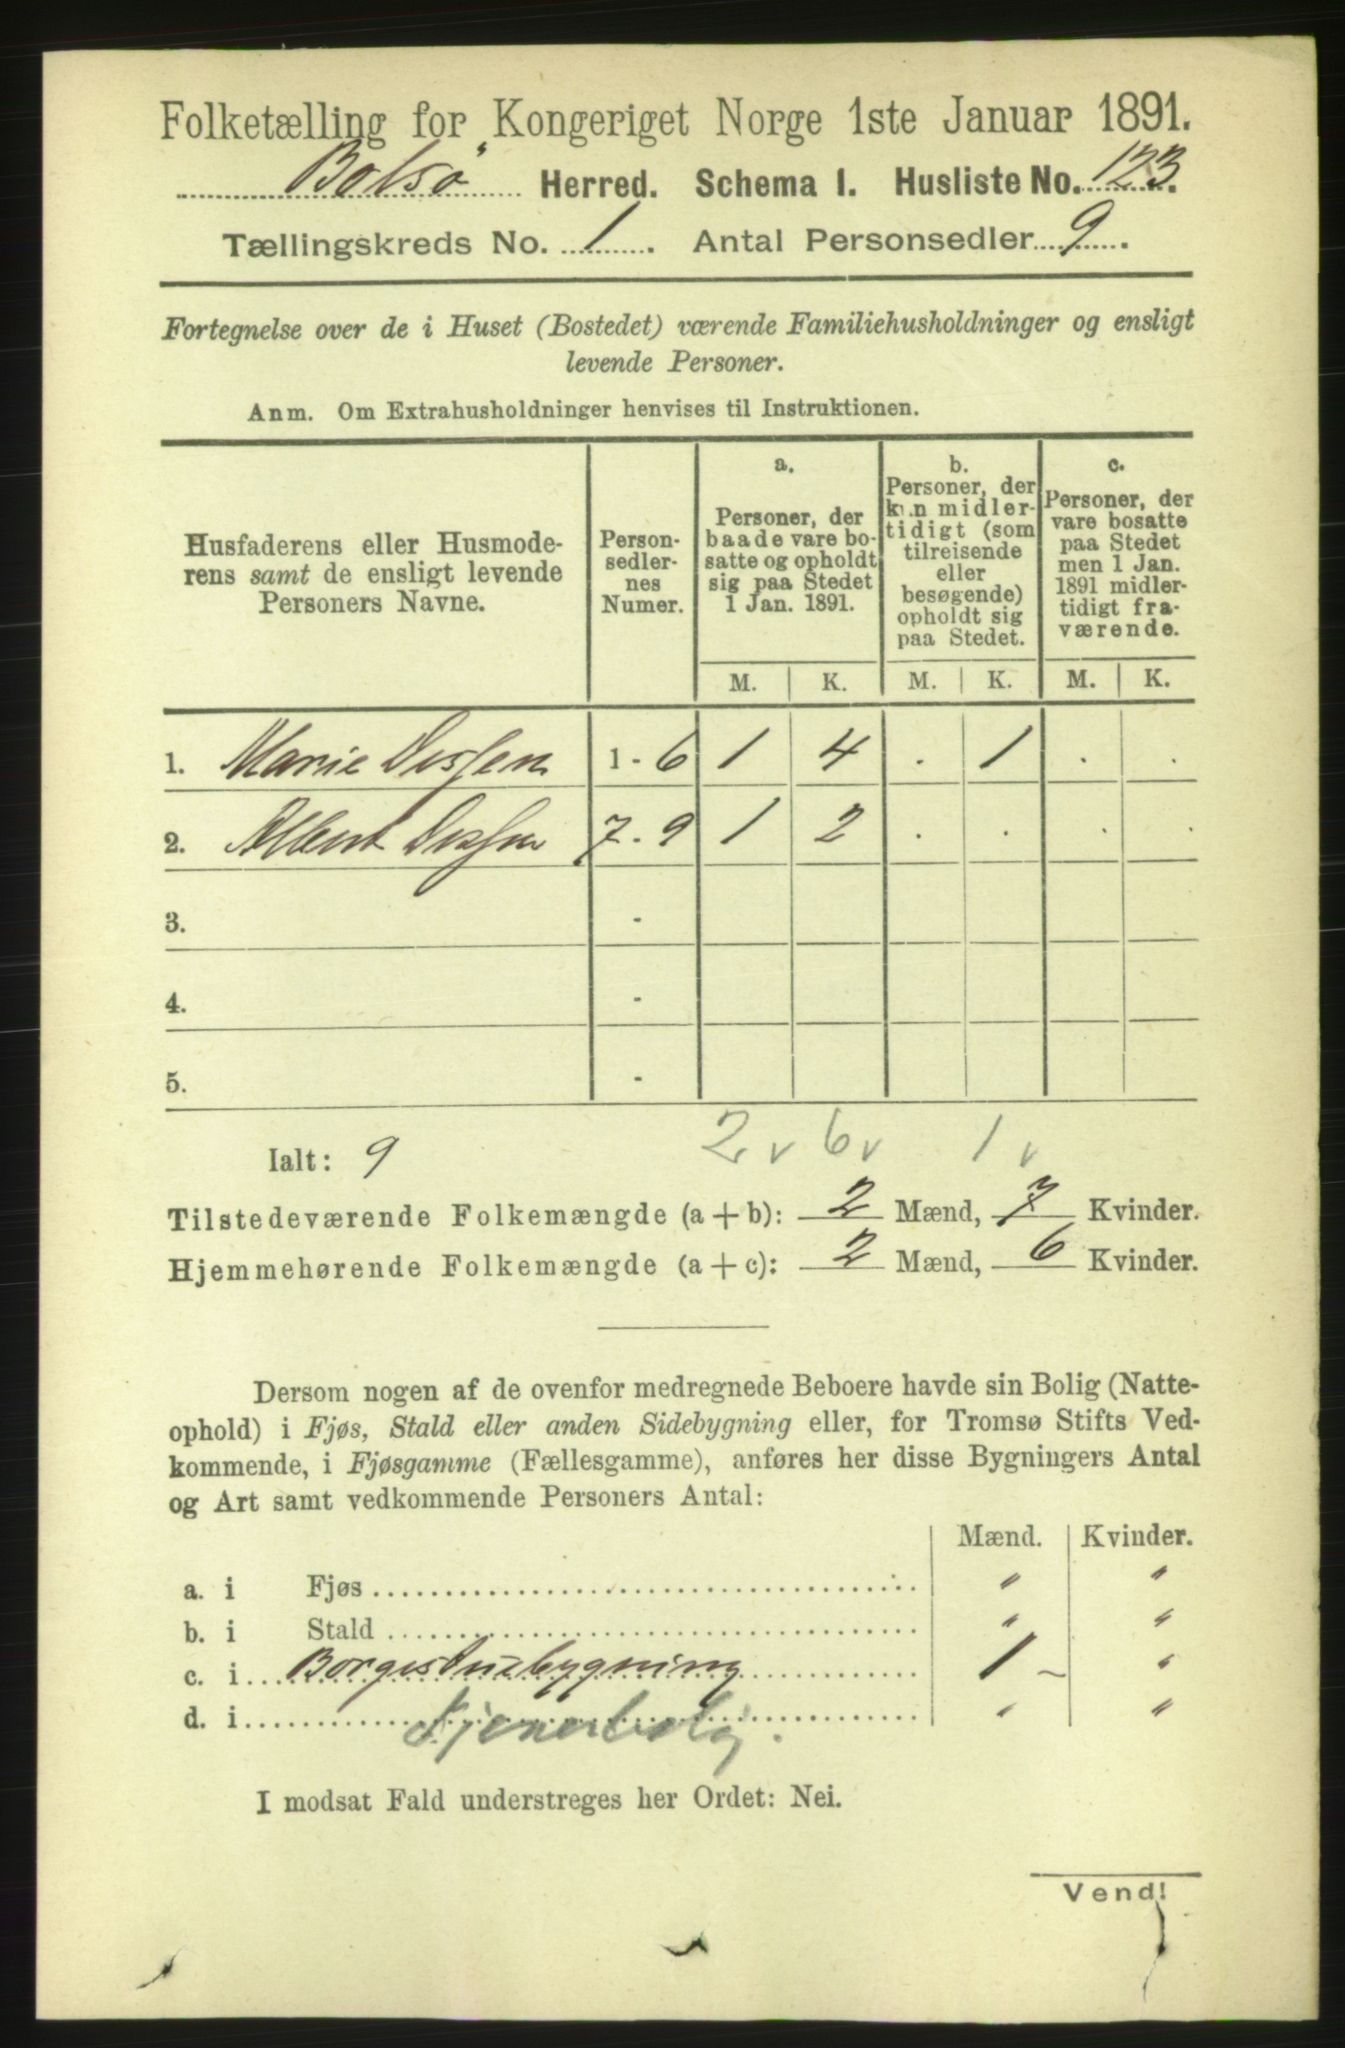 Folketælling for Kongeriget Norge 1ste Januar 1891.
Bolsø Herred. Schema I. Husliste No. 123.
Tællingskreds No. 1. Antal Personsedler 9.
Fortegnelse over de i Huset (Bostedet) værende Familiehusholdninger og ensligt
levende Personer.
Anm. Om Extrahusholdninger henvises til Instruktionen.
Husfaderens eller Husmode-
rens samt de ensligt levende
Personers Navne.
Person-
sedler-
nes
Numer.
a.
Personer, der
baade vare bo-
satte og opholdt
sig paa Stedet
1 Jan. 1891.
b.
Personer, der
kun midler-
tidigt (som
tilreisende
eller
besøgende)
opholdt sig
paa Stedet.
c.
Personer, der
vare bosatte
paa Stedet
men 1 Jan.
1891 midler-
tidigt fra-
værende.
M. K. M. K. M. K.
1. Marie Dessen 1 - 6 1 4 . 1 . .
2. Albert Dessen 7 - 9 1 2 . . . .
3. -
4. -
5. -
2 v 6 v 1 v
Ialt: 9
Tilstedeværende Folkemængde (a + b): 2 Mænd, 7 Kvinder.
Hjemmehørende Folkemængde (a + c): 2 Mænd, 6 Kvinder.
Dersom nogen af de ovenfor medregnede Beboere havde sin Bolig (Natte-
ophold) i Fjøs, Stald eller anden Sidebygning eller, for Tromsø Stifts Ved-
kommende, i Fjøsgamme (Fællesgamme), anføres her disse Bygningers Antal
og Art samt vedkommende Personers Antal:
Mænd. Kvinder.
a. i Fjøs " "
b. i Stald " "
c. i 1 ~ "
d. i " "
I modsat Fald understreges her Ordet: Nei.
Vend!